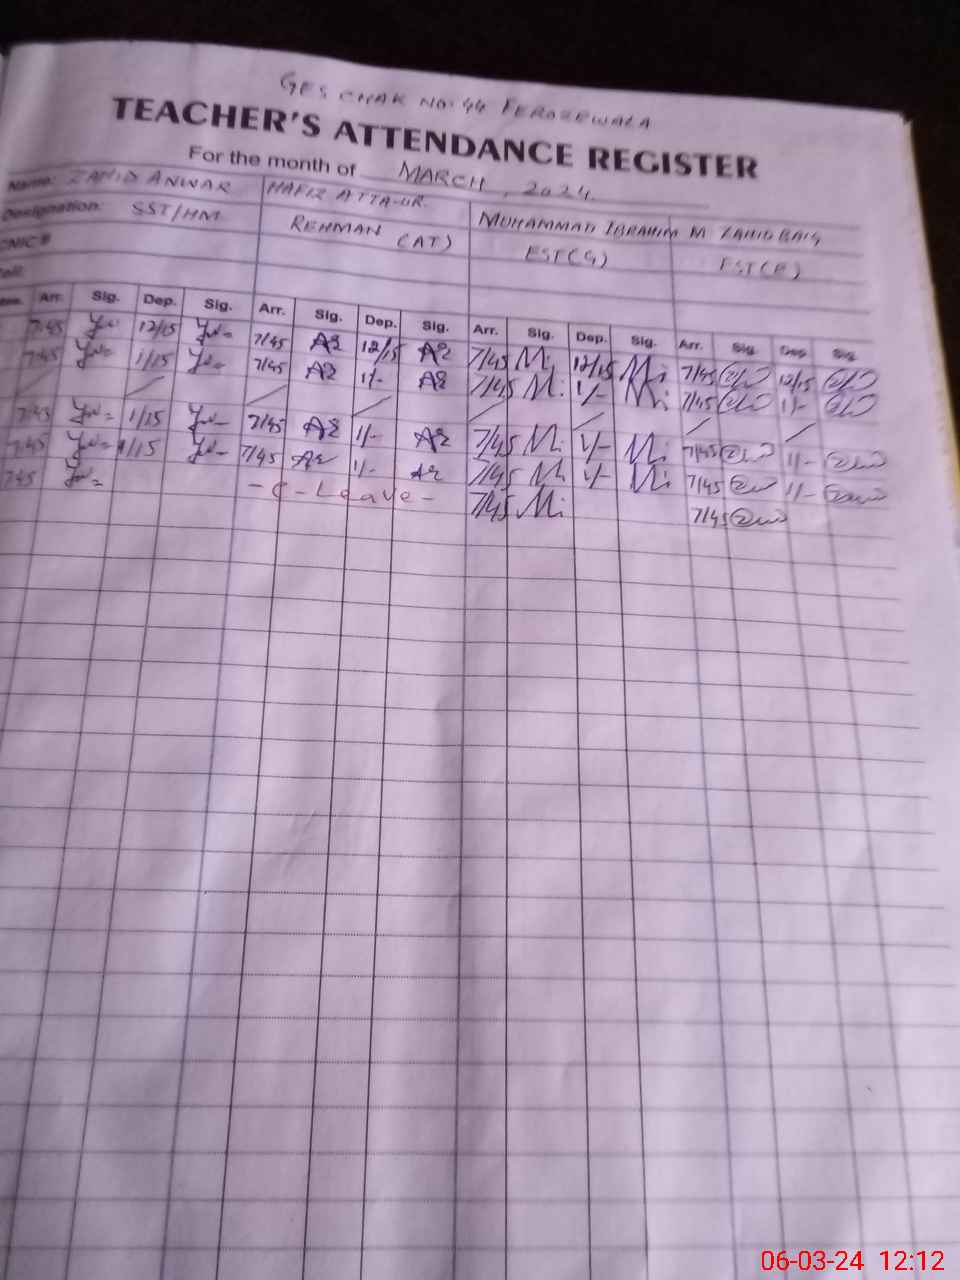 GES CHAK NO: 44 FEROZEWALA
TEACHER'S ATTENDANCE REGISTER
For the month of MARCH, 2024.
Name: ZAHID ANWAR HAFIZ ATTA-UR. MUHAMMAD IBRAHIM M ZAHID BAIG
Designation: SST/HM REHMAN (AT) EST(G) EST(P)
CNIC #
Arr. Sig. Dep. Sig. Arr. Sig. Dep. Sig. Arr. Sig. Dep. Sig. Arr. Sig. Dep. Sig.
7/45 12/15 7/45 12/15 7/45 12/15 7/45 12/15
7/45 1/15 7/45 1/- 7/45 1/- 7/45 1/-
7/45 1/15 7/45 1/- 7/45 1/- 7/45 1/-
7/45 1/15 7/45 1/- 7/45 1/- 7/45 1/-
7/45 - C - Leave - 7/45 7/45
06-03-24 12:12